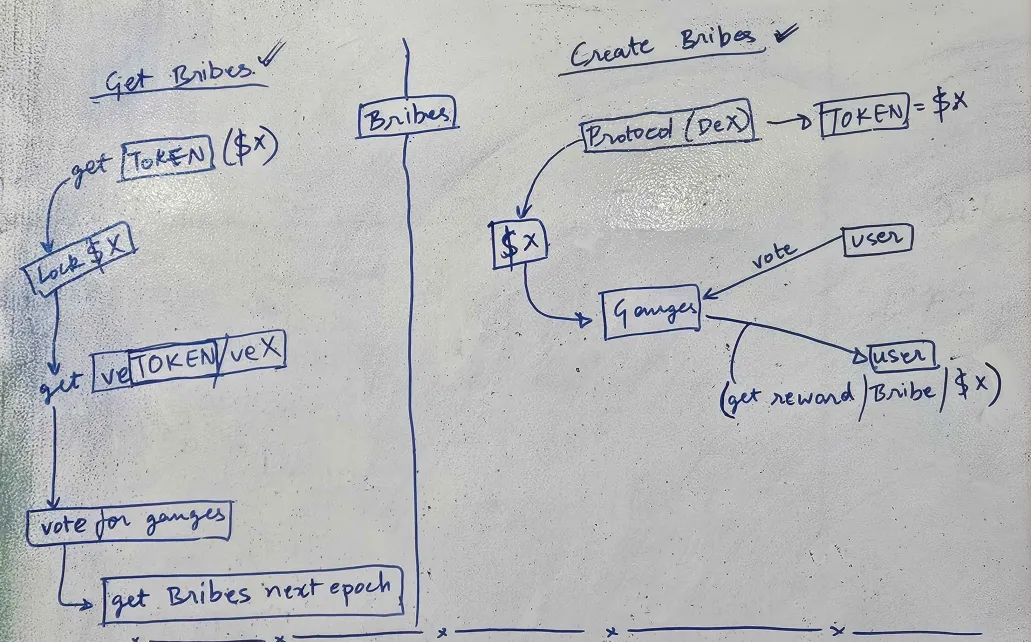 Get Bribes ✓
get TOKEN ($X)
Lock $X
get veTOKEN/veX
vote for gauges
get Bribes next epoch
Bribes
Create Bribes ✓
Protocol (DeX) → TOKEN = $X
$X
user
vote
Gauges
user
(get reward/Bribe/$X)